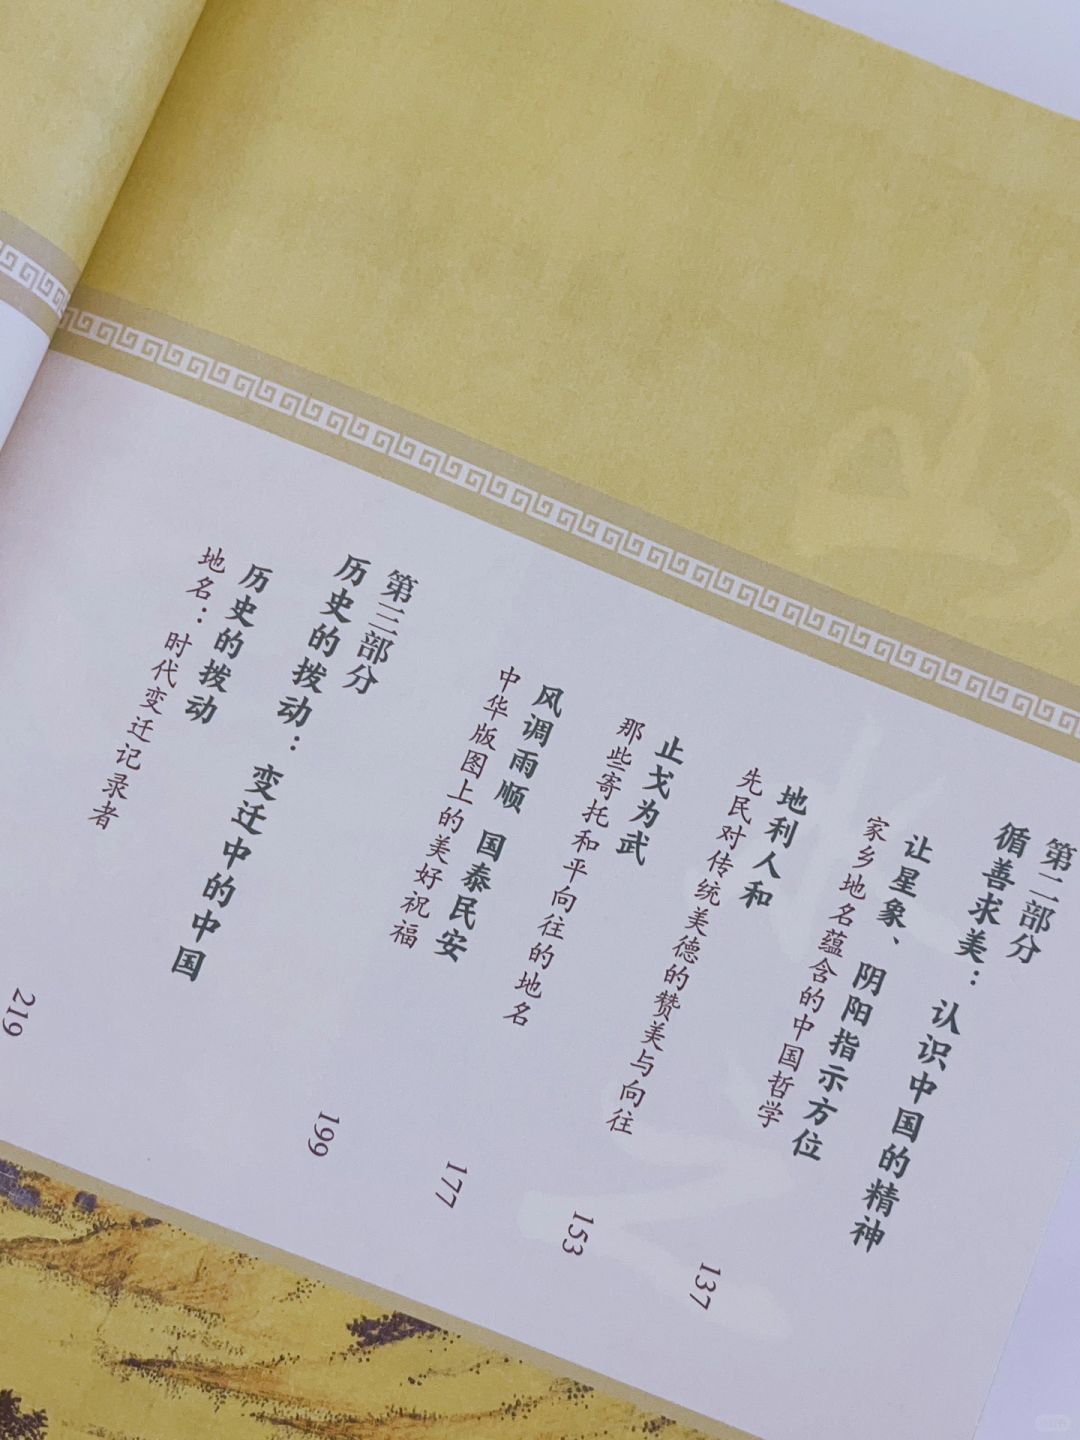 第二部分
循善求美：认识中国的精神
让星象、阴阳指示方位
家乡地名蕴含的中国哲学
137
地利人和
先民对传统美德的赞美与向往
153
止戈为武
那些寄托和平向往的地名
177
风调雨顺 国泰民安
中华版图上的美好祝福
199
第三部分
历史的拨动：变迁中的中国
历史的拨动
地名：时代变迁记录者
219